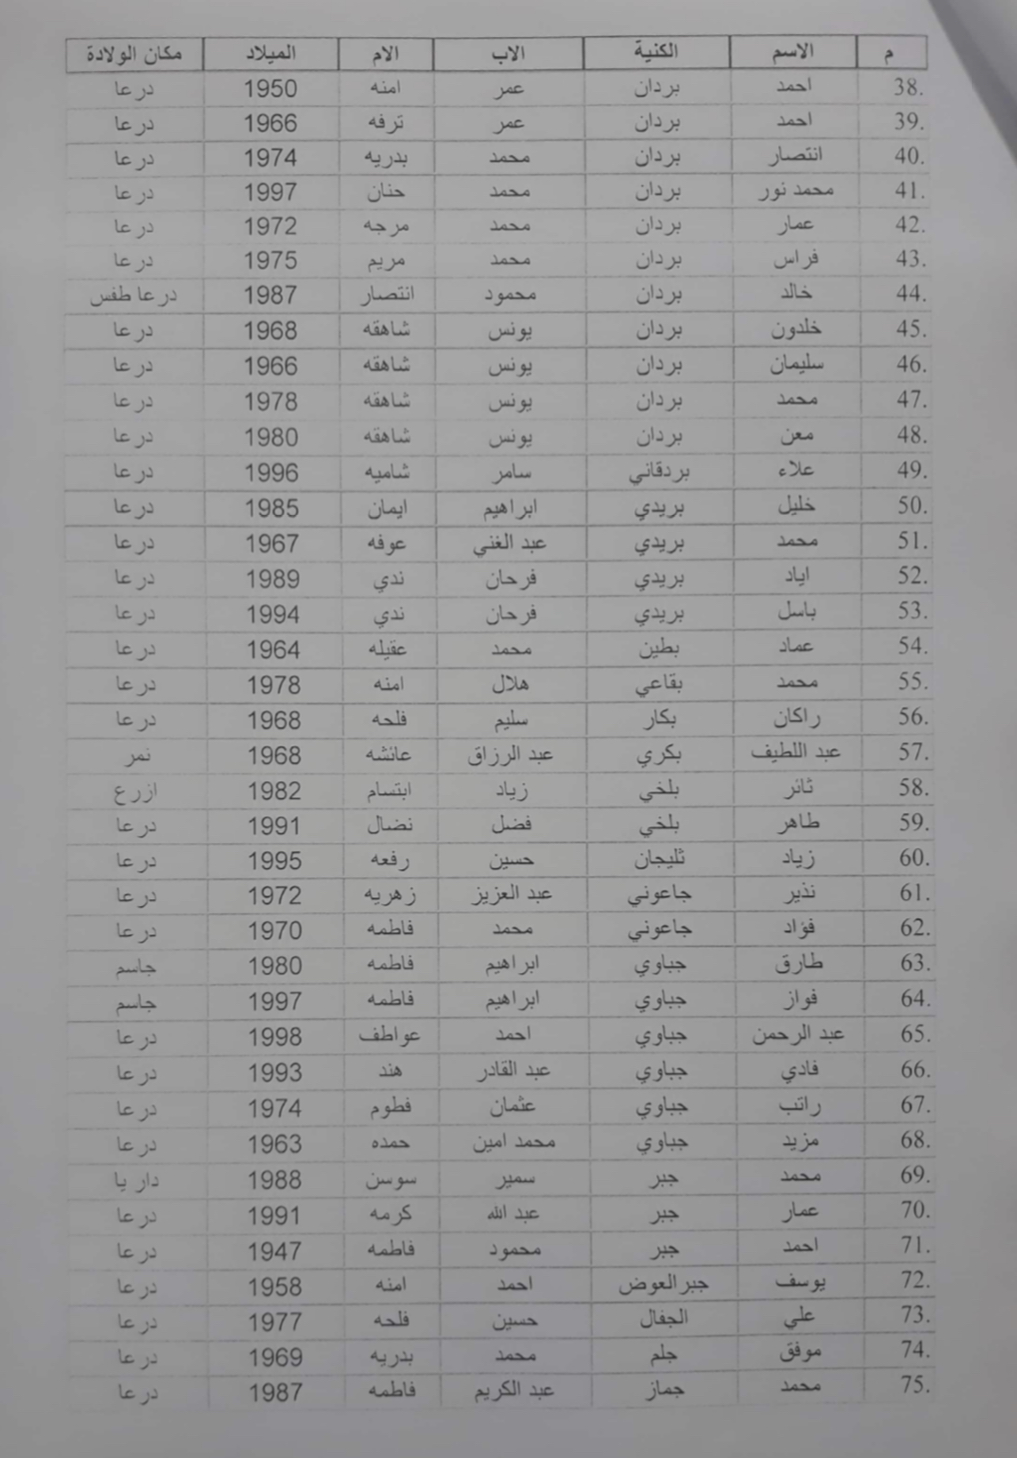 م الاسم الكنية الاب الام الميلاد مكان الولادة
38. احمد بردان عمر امنه 1950 درعا
39. احمد بردان عمر ترفه 1966 درعا
40. انتصار بردان محمد بدريه 1974 درعا
41. محمد نور بردان محمد حنان 1997 درعا
42. عمار بردان محمد مرجه 1972 درعا
43. فراس بردان محمد مريم 1975 درعا
44. خالد بردان محمود انتصار 1987 درعا طفس
45. خلدون بردان يونس شاهقه 1968 درعا
46. سليمان بردان يونس شاهقه 1966 درعا
47. محمد بردان يونس شاهقه 1978 درعا
48. معن بردان يونس شاهقه 1980 درعا
49. علاء بردقاني سامر شاميه 1996 درعا
50. خليل بريدي ابراهيم ايمان 1985 درعا
51. محمد بريدي عبد الغني عوفه 1967 درعا
52. اياد بريدي فرحان ندي 1989 درعا
53. باسل بريدي فرحان ندي 1994 درعا
54. عماد بطين محمد عقيله 1964 درعا
55. محمد بقاعي هلال امنه 1978 درعا
56. راكان بكار سليم فلحه 1968 درعا
57. عبد اللطيف بكري عبد الرزاق عائشه 1968 نمر
58. ثائر بلخي زياد ابتسام 1982 ازرع
59. طاهر بلخي فضل نضال 1991 درعا
60. زياد ثليجان حسين رفعه 1995 درعا
61. نذير جاعوني عبد العزيز زهريه 1972 درعا
62. فؤاد جاعوني محمد فاطمه 1970 درعا
63. طارق جباوي ابراهيم فاطمه 1980 جاسم
64. فواز جباوي ابراهيم فاطمه 1997 جاسم
65. عبد الرحمن جباوي احمد عواطف 1998 درعا
66. فادي جباوي عبد القادر هند 1993 درعا
67. راتب جباوي عثمان فطوم 1974 درعا
68. مزيد جباوي محمد امين حمده 1963 درعا
69. محمد جبر سمير سوسن 1988 دار يا
70. عمار جبر عبد الله كرمه 1991 درعا
71. احمد جبر محمود فاطمه 1947 درعا
72. يوسف جبر العوض احمد امنه 1958 درعا
73. علي الجفال حسين فلحه 1977 درعا
74. موفق جلم محمد بدريه 1969 درعا
75. محمد جماز عبد الكريم فاطمه 1987 درعا